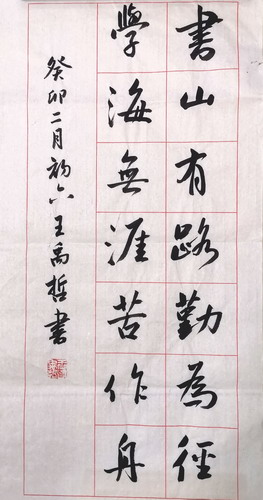 書山有路勤為徑
學海無涯苦作舟
癸卯二月初六王禹哲書